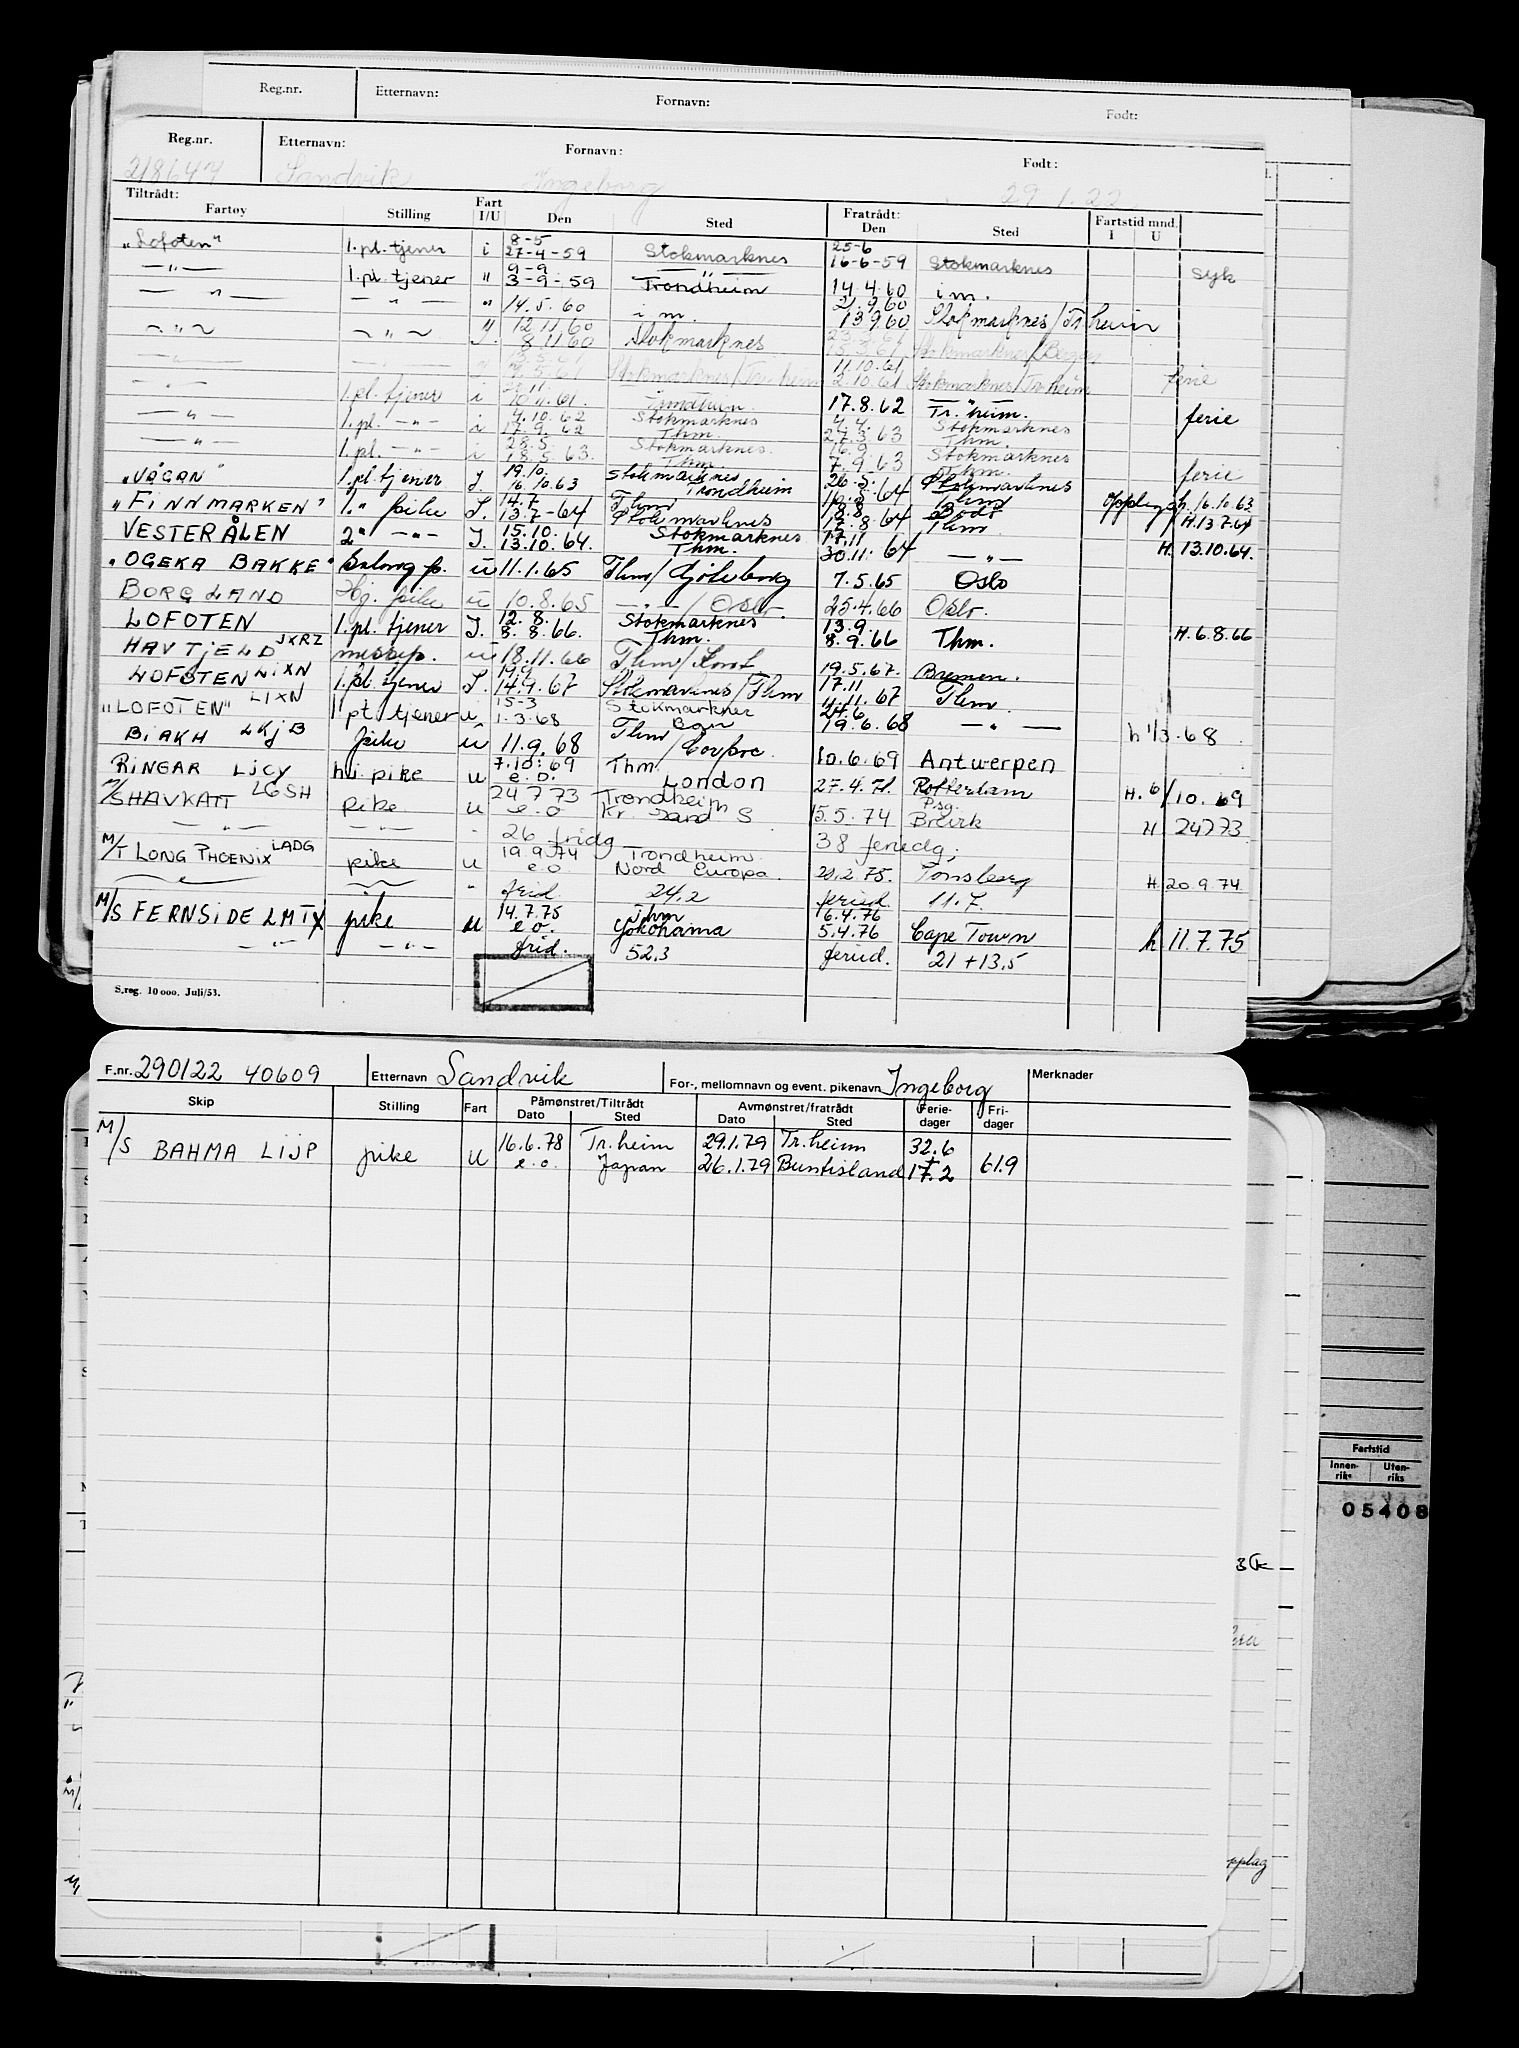 Reg.nr. Etternavn: Fornavn: Født:
Reg.nr. Etternavn: Fornavn: Født:
218647 Sandvik Ingeborg 29.1.22
Tiltrådt: Fart Fratrådt: Fartstid mnd.
Fartøy Stilling I/U Den Sted Den Sted I U
8-5 25-6
"Lofoten" 1.pl.tjener i 27-4-59 Stokmarknes 16-6-59 Stokmarknes syk
9-9
—"— 1.pl.tjener " 3-9-59 Trondheim 14.4.60 i m.
21.9.60
—"— —"— " 14.5.60 i m. 13.9.60 Stokmarknes/Tr.heim
12.11.60
—"— "— J. 8.11.60 Stokmarknes Stokmarknes/Bergen
11.10.61
—"— Stokmarknes/Tr.heim 2.10.61 Stokmarknes/Tr.heim ferie
—"— 1.pl.tjener i Trondheim. 17.8.62 Tr.heim. ferie
4.10.62 Stokmarknes 4.4. Stokmarknes
—"— 1.pl. —"— i 17.9.62 Thm. 27.3.63 Thm.
28.5. Stokmarknes. 16.9. Stokmarknes
—"— 1.pl. —"— i 18.5.63. Thm. 7.9.63 Thm. ferie
19.10. Stokmarknes 26.5. Stokmarknes
"VÅGAN" 1.pl.tjener J. 16.10.63 Trondheim 16.5.64 Thm Opplag h.16.10.63
14.7 Thm 18.8 Bodø
"FINNMARKEN" 1." pike J. 13.7-64 Stokmarknes 17.8.64 Thm H.13.7.64
15.10. Stokmarknes 17.11
VESTERÅLEN 2" —"— J. 13.10.64. Thm. 30.11.64 —"— H. 13.10.64.
"OGEKA BAKKE" Salong p. u 11.1.65 Thm/Gøteborg 7.5.65 Oslo
BORGLAND Hj. pike u 10.8.65 —"—/Oslo. 25.4.66 Oslo.
12.8. Stokmarknes 13.9.
LOFOTEN 1.pl.tjener J. 8.8.66. Thm. 8.9.66 Thm. H.6.8.66
HAVTJELD JXRZ messep. u 18.11.66 Thm/ 19.5.67. Bremen.
19.9 17.11
LOFOTEN LIXN 1.pl.tjener J. 14.9.67 Stokmarknes/Thm 11.11.67 Thm.
15-3 Stokmarknes 24.6
"LOFOTEN" LIXN 1 pl.tjener i 1.3.68 19.6.68 —"— h 1/3.68
BIAKH LKJB pike u 11.9.68 Thm 10.6.69 Antwerpen
7.10.69 Thm.
RINGAR LICY hj.pike u e.o. London 27.4.71. Rotterdam H.6/10.69
24 7 73 Trondheim Psg.
M/S HAVKATT LGSH pike u e.o Kr. Sand S 15.5.74 Brevik H 24773
—"— —"— " 26 fridg 38 feriedg.
19.9.74 Trondheim
M/T LONG PHOENIX LADG pike u e.o Nord Europa. 21.2.75. Tønsberg H 20.9.74
" frid 24,2 feried. 11.7.
14.7.75 Thm 6.4.76
M/S FERNSIDE LMTX pike u e.o. Yokohama 5.4.76 Cape Town h 11.7.75
—"— —"— frid. 52,3 feried. 21 + 13,5
S.reg. 10 000. Juli/53.
F.nr. 290122 40609 Etternavn Sandvik For-, mellomnavn og event. pikenavn Ingeborg Merknader
Skip Stilling Fart Påmønstret/Tiltrådt Avmønstret/fratrådt Ferie-dager Fri-dager
Dato Sted Dato Sted
16.6.78 Tr.heim 29.1.79 Tr.heim 32.6
M/S BAHMA LIJP pike u e.o. Japan 26.1.79 Buntisland + 17.2 61.9
Fartstid
Innen-riks Uten-riks
05408
opplag